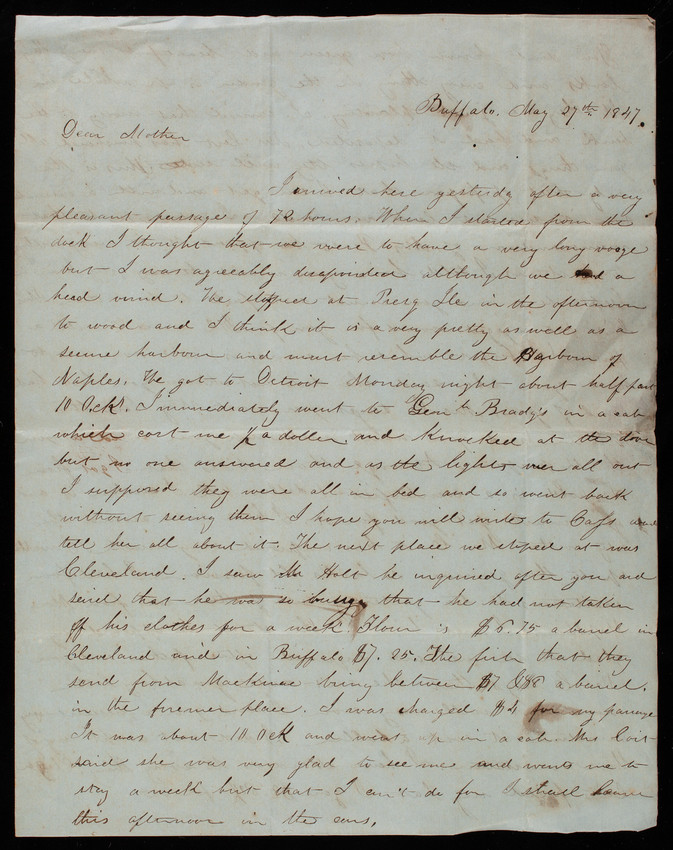 Buffalo. May 27th 1847.
Dear Mother
I arrived here yesterday after a very
pleasant passage of 72 hours. When I started from the
dock I thought that we were to have a very long
but I was agreeably although we had a
head wind. We stopped at Presq Ile in the afternoon
to wood and I think it is a very pretty as well as a
secure harbour and must resemble the Harbour of
Naples. We got to Detroit Monday night about half past
10 Ock. I immediately went to Genl Brady's in a cab
which cost me ½ a dollar and knocked at the door
but no one answered and as the lights were all out
I supposed they were all in bed and so went back
without seeing them I hope you will write to Cass and
tell her all about it. The next place we stoped at was
Cleveland. I saw Mr Holt he inquired after you and
said that he was so busy that he had not taken
off his clothes for a week. Flour is $6.75 a barrel in
Cleveland and in Buffalo $7.25. The fish that they
send from Mackinac bring between $7 & $8 a barrel.
in the former place. I was charged $4 for my passage
It was about 10 Ock and went up in a cab Mrs Coit
said she was very glad to see me and wants me to
stay a week but that I can't do for I shall leave
this afternoon in the cars.